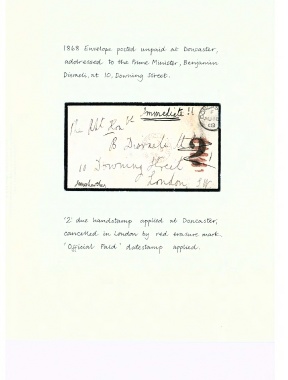 1868 Envelope posted unpaid at Doncaster,
addressed to the Prime Minister, Benjamin
Disraeli, at 10, Downing Street.
Immediate
Rt Hon
B Disraeli
Downing Street
London
2
'2' due handstamp applied at Doncaster,
cancelled in London by red erasure mark.
'Official Paid' datestamp applied.